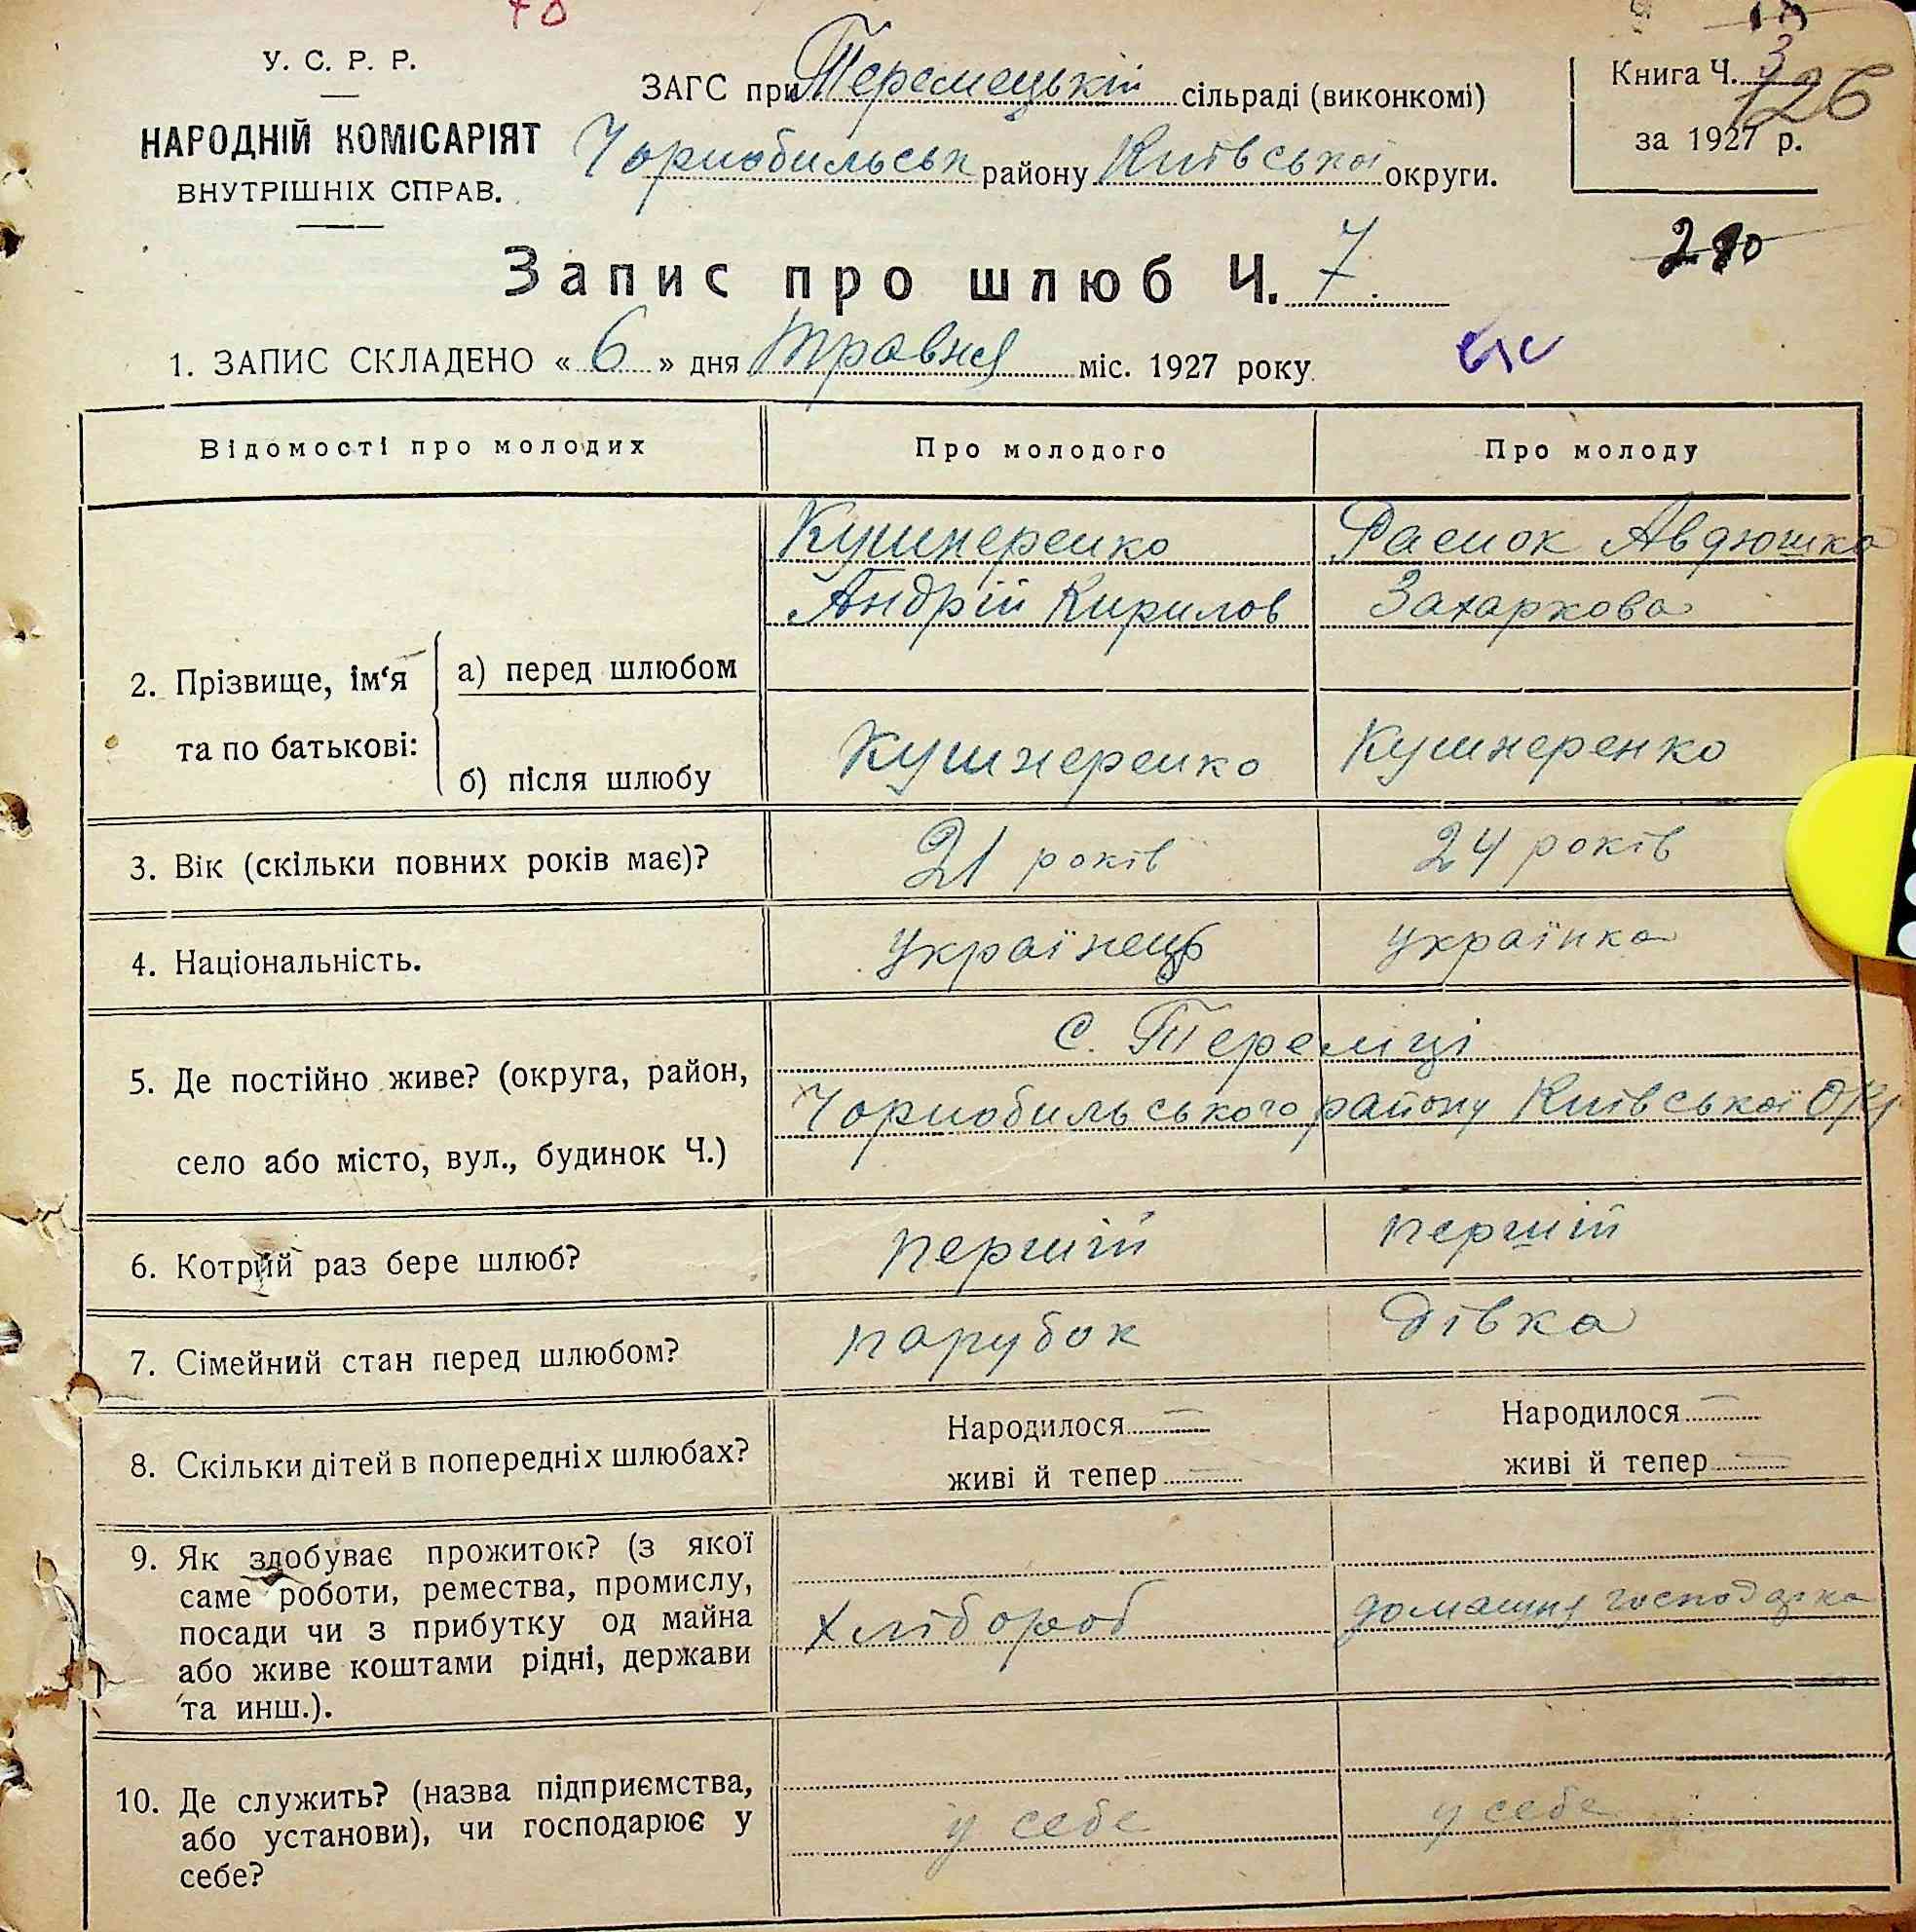 У. С. Р. Р.
НАРОДНІЙ КОМІСАРІЯТ
ВНУТРІШНІХ СПРАВ.
ЗАГС при Теремецькій сільраді (виконкомі)
Чорнобильськ району Київської округи.
Книга Ч. 3
126
за 1927 р.
Запис про шлюб Ч. 7.
1. ЗАПИС СКЛАДЕНО « 6 » дня травня міс. 1927 року
Відомості про молодих Про молодого Про молоду
Кушнеренко Раенок Авдюшка
Андрій Кирилов Захаркова
2. Прізвище, ім‘я та по батькові:
а) перед шлюбом
б) після шлюбу Кушнеренко Кушнеренко
3. Вік (скільки повних років має)? 21 років 24 років
4. Національність. українець українка
5. Де постійно живе? (округа, район, с. Тереміці
село або місто, вул., будинок Ч.) Чорнобильського району Київської окр
6. Котрий раз бере шлюб? першій першій
7. Сімейний стан перед шлюбом? парубок дівка
8. Скільки дітей в попередніх шлюбах? Народилося — Народилося —
живі й тепер — живі й тепер —
9. Як здобуває прожиток? (з якої
саме роботи, ремества, промислу,
посади чи з прибутку од майна хлібороб домашня господарка
або живе коштами рідні, держави
та инш.).
10. Де служить? (назва підприємства,
або установи), чи господарює у у себе у себе
себе?